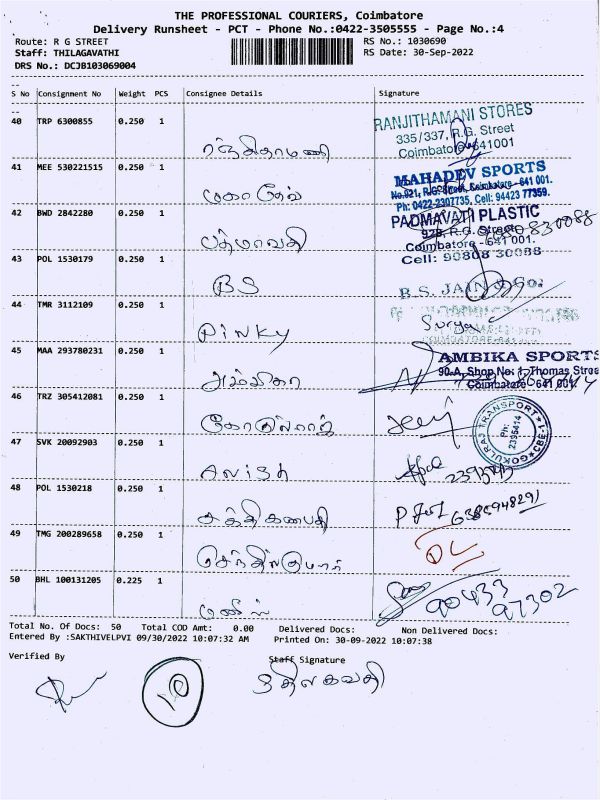 THE PROFESSIONAL COURIERS, Coimbatore
Delivery Runsheet - PCT - Phone No.:0422-3505555 - Page No.:4
Route: R G STREET
RS No.: 1030690
Staff: THILAGAVATHI
RS Date: 30-Sep-2022
DRS No.: DCJB103069004
S No Consignment No Weight PCS Consignee Details Signature
40 TRP 6300855 0.250 1
ரஞ்சிதாமணி
RANJITHAMANI STORES
335/337, R.G. Street
Coimbatore 641001
41 MEE 530221515 0.250 1
மகாதேவ்
MAHADEV SPORTS
No.921, R.G. Street, Coimbatore - 641 001.
Ph: 0422-2307735, Cell: 94423 77359.
42 BWD 2842280 0.250 1
பத்மாவதி
PADMAVATI PLASTIC
R.G. Street
Coimbatore - 641 001.
Cell: 90808 30088
43 POL 1530179 0.250 1
BS
B.S. JAIN
44 TMR 3112109 0.250 1
PINKY
Surya
45 MAA 293780231 0.250 1
அம்பிகா
AMBIKA SPORTS
90-A, Shop No: 1, Thomas Street
Coimbatore - 641 001.
46 TRZ 305412081 0.250 1
கோகுல்ராஜ்
GOKULRAJ TRANSPORT CBE-1
Ph: 2395414
47 SVK 20092903 0.250 1
48 POL 1530218 0.250 1
சக்திகணபதி
49 TMG 200289658 0.250 1
செந்தில்குமார்
50 BHL 100131205 0.225 1
மணிஸ்
90433
97302
Total No. Of Docs: 50 Total COD Amt: 0.00 Delivered Docs: Non Delivered Docs:
Entered By :SAKTHIVELPVI 09/30/2022 10:07:32 AM Printed On: 30-09-2022 10:07:38
Verified By
Staff Signature
திலகவதி
10